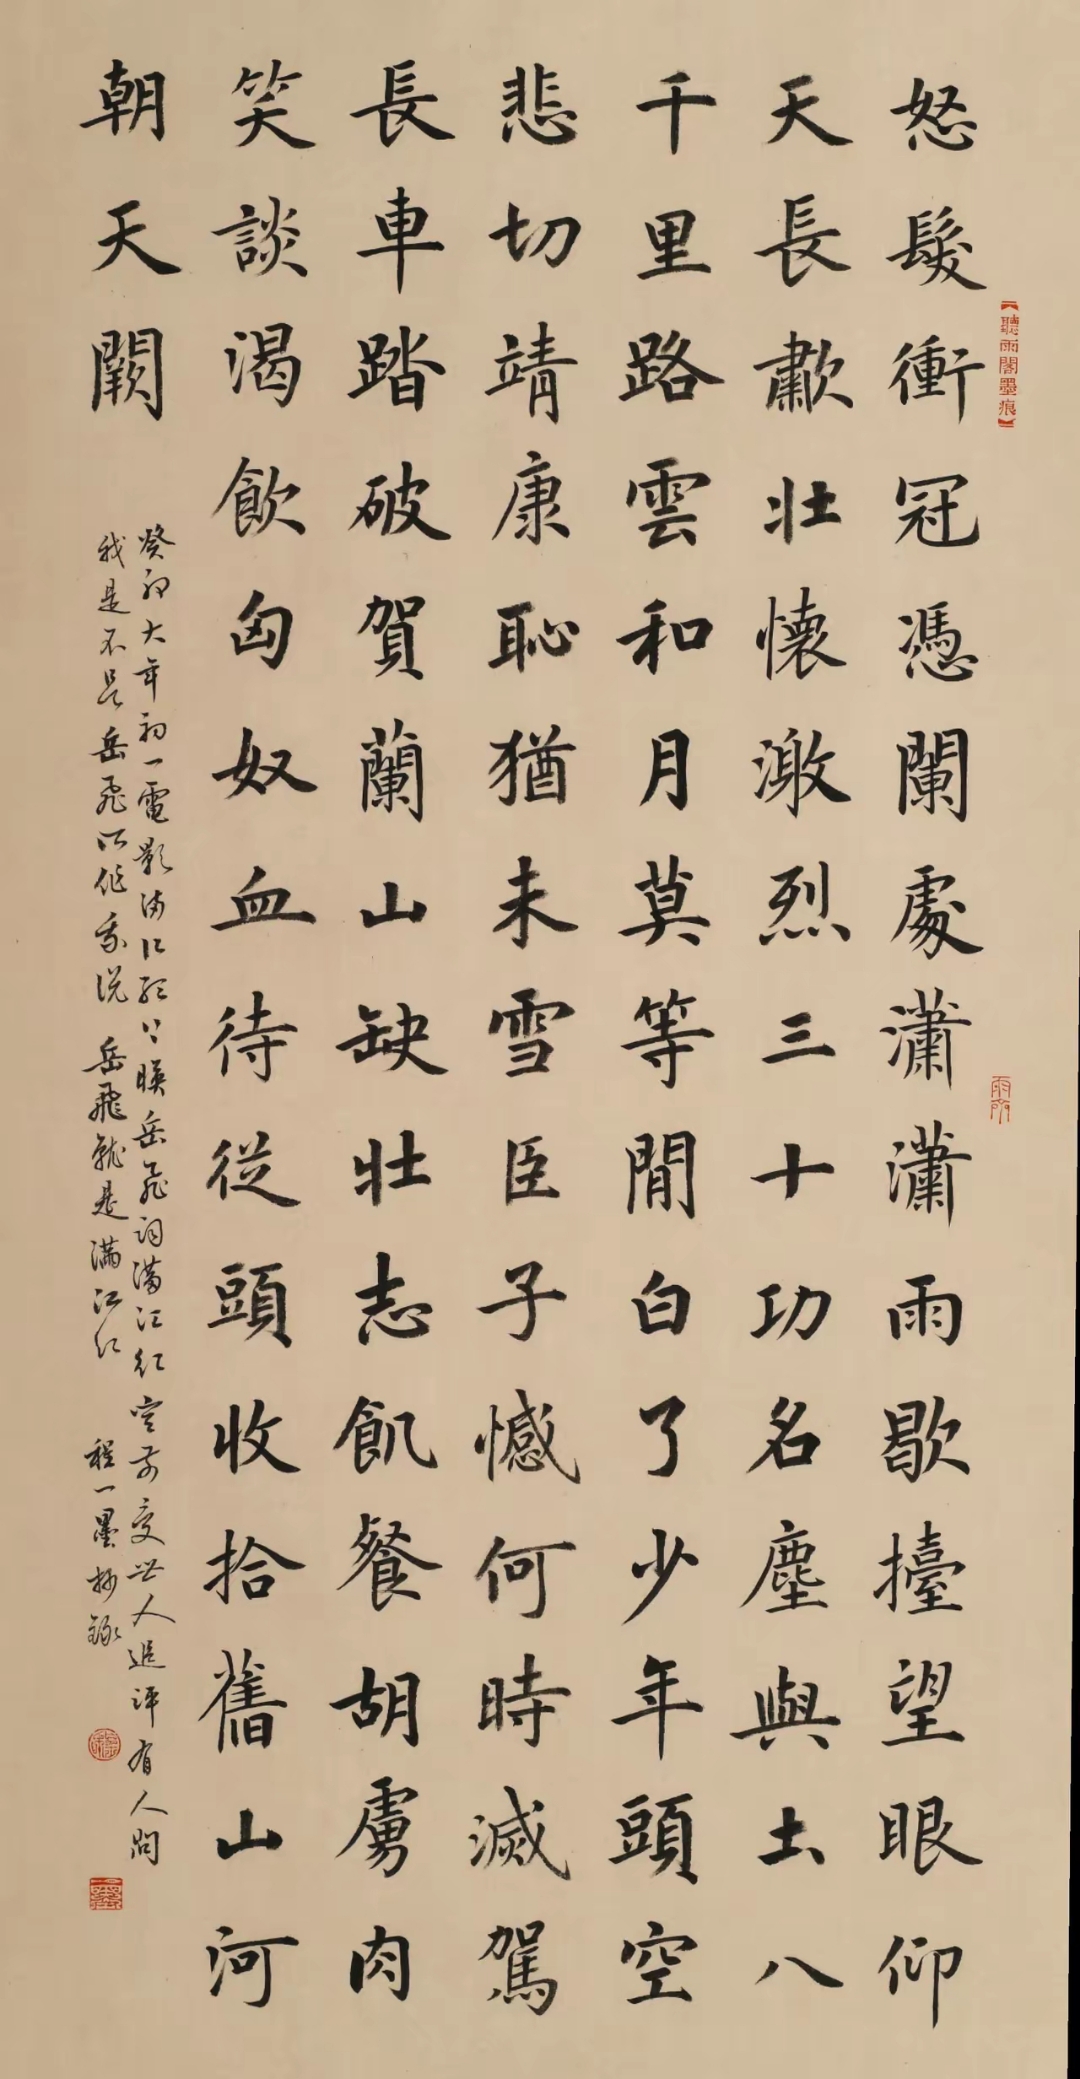 【聽雨閣墨痕】
怒髮衝冠憑闌處瀟瀟雨歇擡望眼仰
天長歗壯懷激烈三十功名塵與土八
千里路雲和月莫等閒白了少年頭空
悲切靖康恥猶未雪臣子憾何時滅駕
長車踏破賀蘭山缺壯志飢餐胡虜肉
笑談渴飲匈奴血待從頭收拾舊山河
朝天闕
癸卯大年初一電影满江红公映岳飛词滿江红空前受世人追评有人問
我是不是岳飛所作我说岳飛就是满江红 程一墨抄録